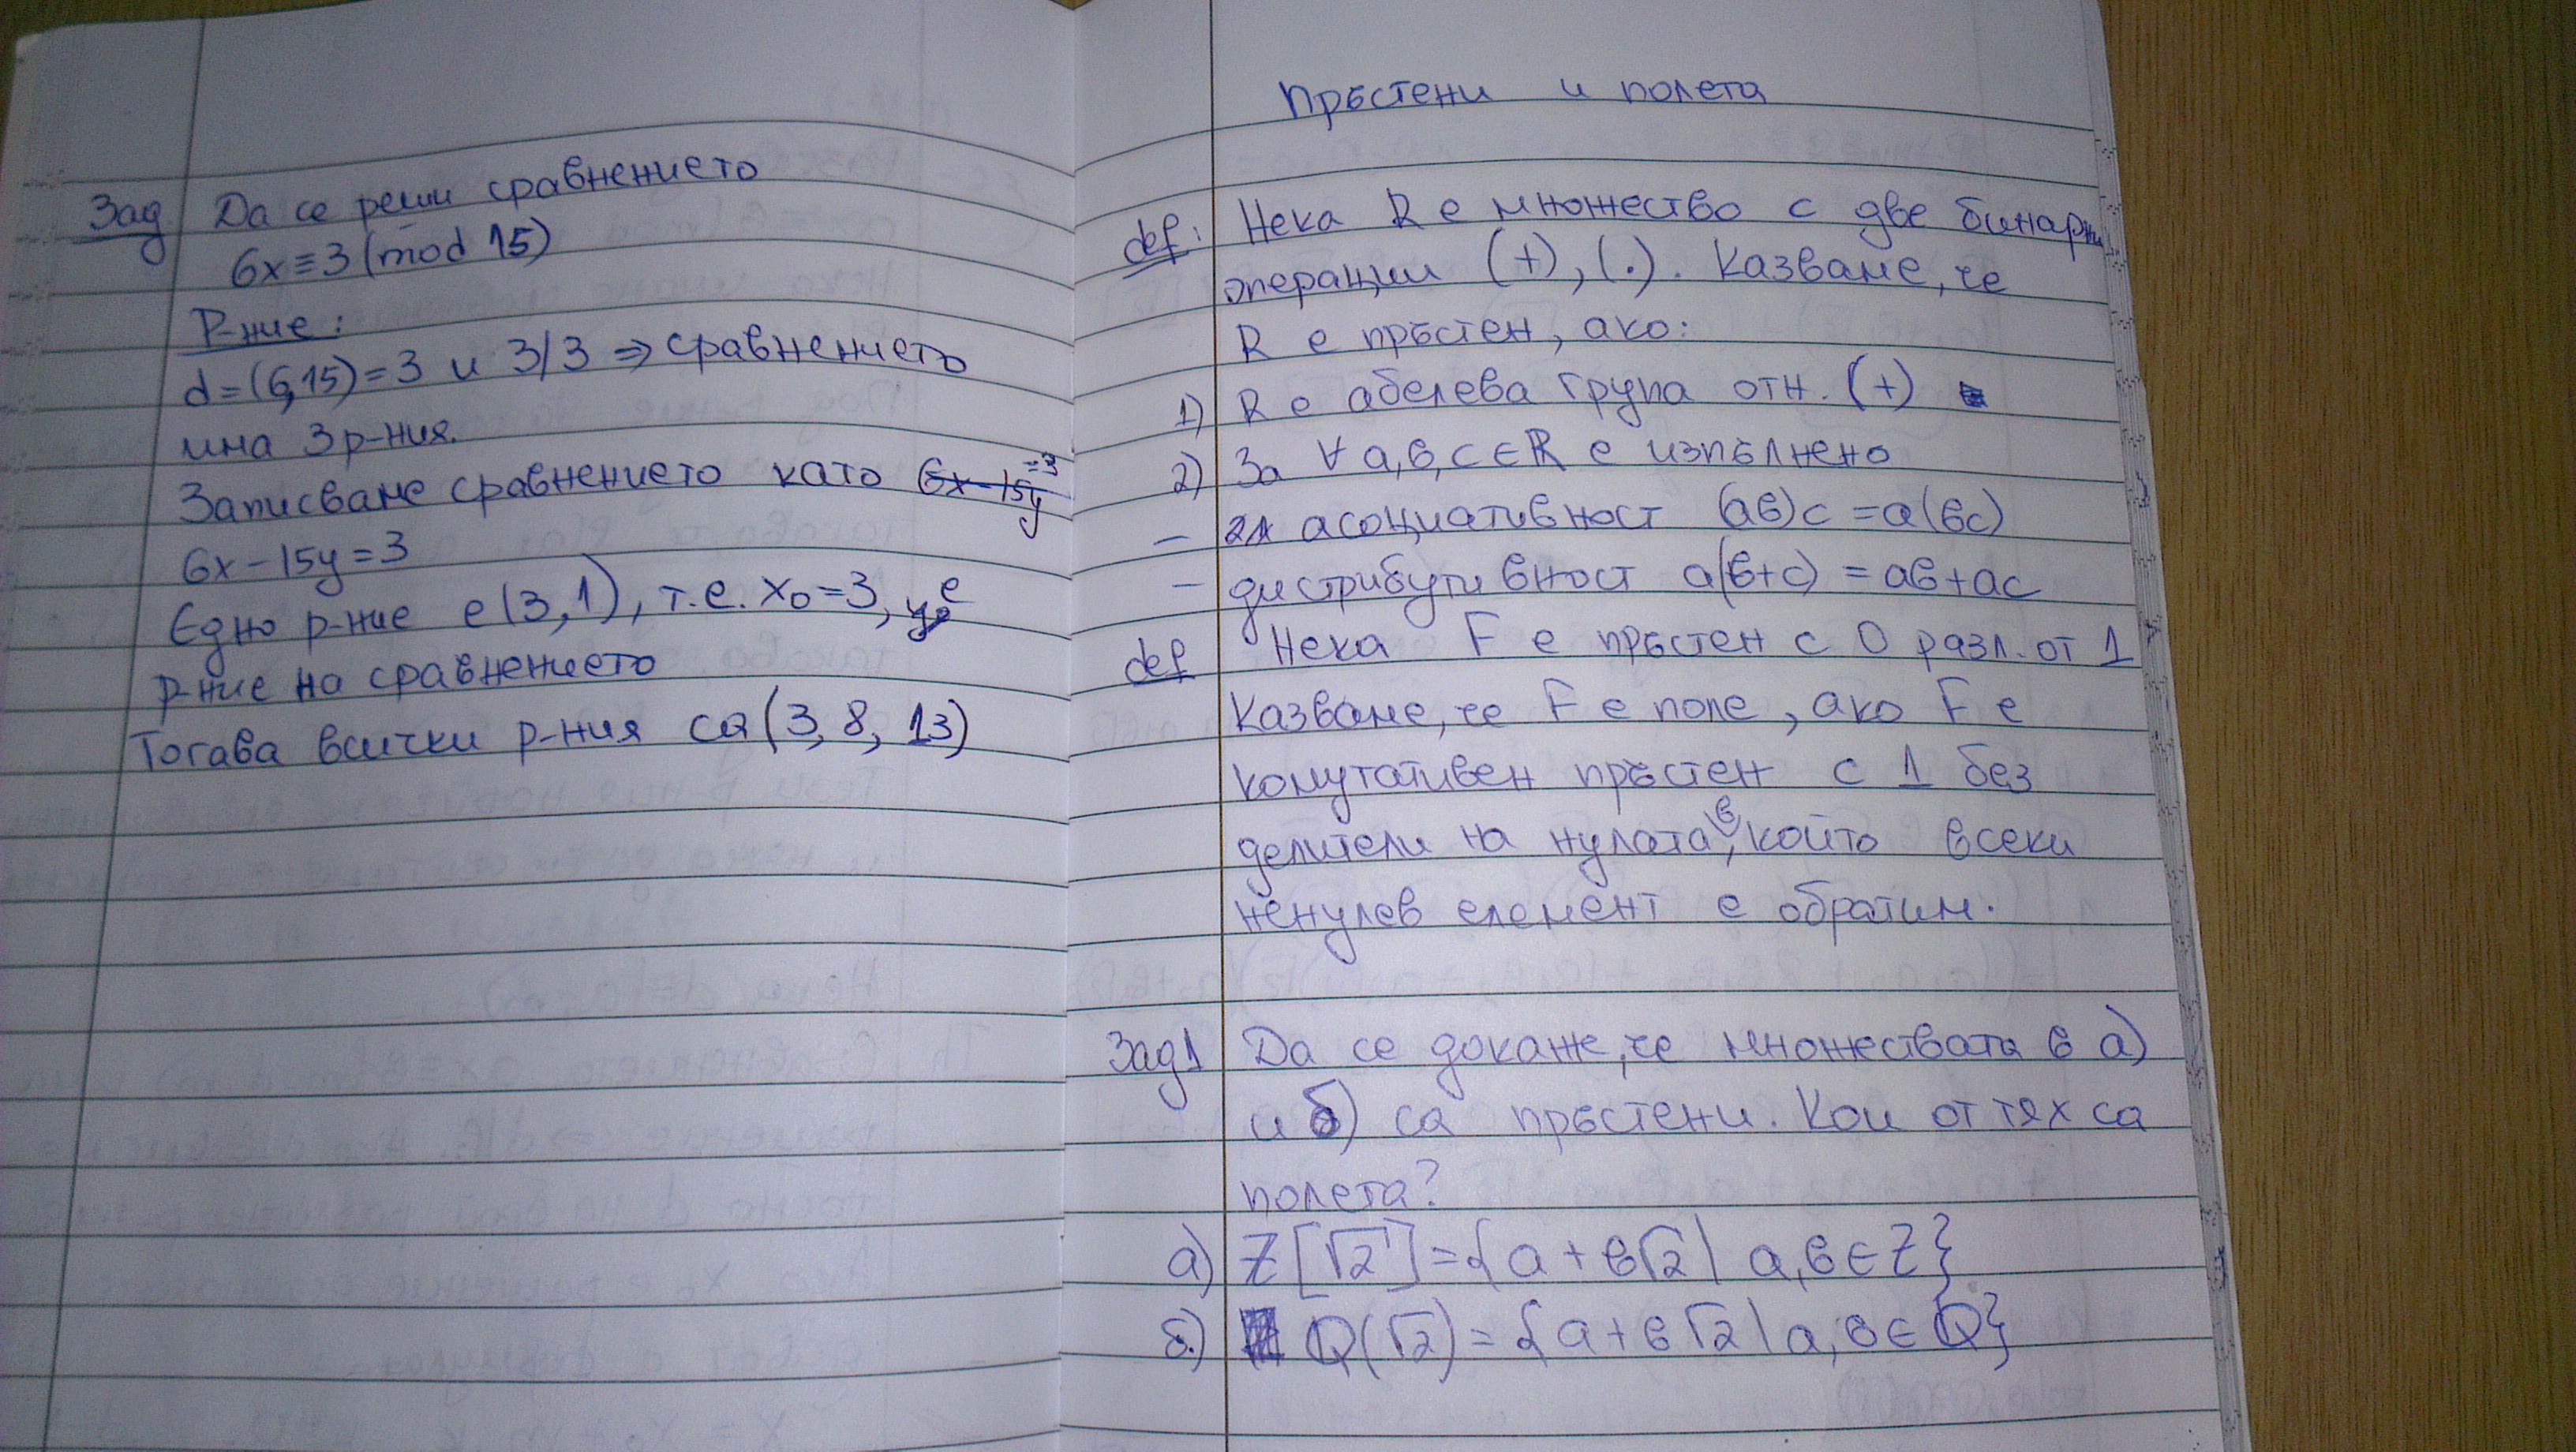 Зад Да се реши сравнението
6x≡3(mod 15)
Р-ние:
d=(6,15)=3 и 3/3 ⇒ сравнението
има 3 р-ния.
Записваме сравнението като 6x-15y=3
6x-15y=3
Едно р-ние е (3,1), т.е. x₀=3, е
р-ние на сравнението
Тогава всички р-ния са (3, 8, 13)
Пръстени и полета
def: Нека R е множество с две бинарни
операции (+), (.). Казваме, че
R е пръстен, ако:
1) R е абелева група отн. (+)
2) За ∀ a,b,c∈R е изпълнено
- асоциативност (ab)c=a(bc)
- дистрибутивност a(b+c)=ab+ac
def Нека F е пръстен с 0 разл. от 1
Казваме, че F е поле, ако F е
комутативен пръстен с 1 без
делители на нулата, в който всеки
ненулев елемент е обратим.
Зад1 Да се докаже, че множествата в а)
и б) са пръстени. Кои от тях са
полета?
а) Z[√2]={a+b√2| a,b∈Z}
б) Q(√2)={a+b√2| a,b∈Q}